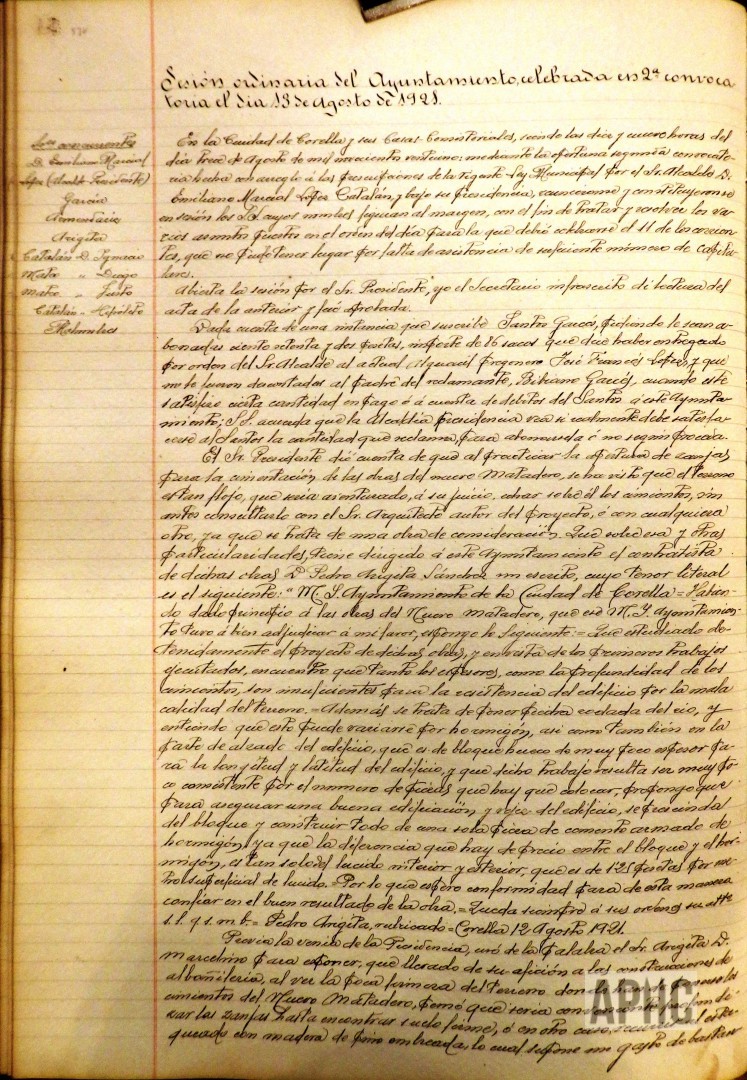 Sesión ordinaria del Ayuntamiento, celebrada en 2ª convoca
toria el dia 13 de Agosto de 1921.
Sres concurrentes
D. Emiliano Marcial
López (Alcalde Presidente)
Garcia
Armendáriz
Arigita
Catalán D. Ignacio
Mateo " Diego
Mateo " Justo
Catalán " Hipólito
En la Ciudad de Corella y sus Casas Consistoriales, siendo las diez y nueve horas del
dia trece de Agosto de mil novecientos veintiuno; mediante la oportuna segunda convocato-
ria hecha con arreglo á las prescripciones de la vigente Ley Municipal por el Sr. Alcalde D.
Emiliano Marcial López Catalán, y bajo su presidencia, reunieronse y constituyeronse
en sesión los S.S. cuyos nombres figuran al margen, con el fin de tratar y resolver los va-
rios asuntos puestos en el orden del día para la que debió celebrarse el 11 de los corrien-
tes, que no pudo tener lugar por falta de asistencia de suficiente número de capitu-
lares.
Abierta la sesión por el Sr. Presidente, yo el Secretario infrascrito di lectura del
acta de la anterior y fué aprobada.
Dada cuenta de una instancia que suscribe Santos Garcés, pidiendo le sean a-
bonadas ciento setenta y dos pesetas, importe de 86 sacos que dice haber entregado
por orden del Sr. Alcalde al actual Alguacil pregonero José Francés López, y que
no le fueron descontados al padre del reclamante, Bibiano Garcés, cuando este
satisfizo cierta cantidad en pago ó á cuenta de débitos del Santos á este Ayunta-
miento; S.S. acuerda que la Alcaldía Presidencia vea si realmente debe satisfa-
cerse al Santos la cantidad que reclama, para abonársela ó no según proceda.
El Sr. Presidente dió cuenta de que al practicar la apertura de zanjas
para la cimentación de las obras del nuevo Matadero, se ha visto que el terreno
es tan flojo, que seria aventurado, á su juicio, echar sobre él los cimientos, sin
antes consultarlo con el Sr. Arquitecto autor del proyecto, ó con cualquiera
otro, ya que se trata de una obra de consideración. Que sobre esa y otras
particularidades, tiene dirigido á este Ayuntamiento el contratista
de dichas obras D. Pedro Arigita Sánchez un escrito, cuyo tenor literal
es el siguiente: "M. I. Ayuntamiento de la Ciudad de Corella = Habien-
do dado principio á las obras del Nuevo Matadero, que ese M. I. Ayuntamien-
to tuvo á bien adjudicar á mi favor, expongo lo siguiente: = Que estudiado de-
tenidamente el proyecto de dichas obras, y en vista de los primeros trabajos
ejecutados, encuentro que tanto los espesores, como la profundidad de los
cimientos, son insuficientes para la resistencia del edificio por la mala
calidad del terreno. = Además se trata de poner piedra rodada del rio, y
entiendo que esto puede variarse por hormigón, asi como tambien en la
parte de alzado del edificio, que es de bloque hueco de muy poco espesor pa-
ra la longitud y latitud del edificio, y que dicho trabajo resulta ser muy po-
co consistente por el número de piezas que hay que colocar, propongo que
para asegurar una buena edificación y vejez del edificio, se prescinda
del bloque y construir todo de una sola pieza de cemento armado de
hormigón, ya que la diferencia que hay de precio entre el bloque y el hor-
migón, es tan solo del lucido interior y exterior, que es de 1'25 pesetas por me-
tro superficial de lucido. = Por lo que espero conformidad para de esta manera
confiar en el buen resultado de la obra. = Queda siempre á sus ordenes su atto
s.s. q. s. m. b. = Pedro Arigita, rubricado = Corella 12 Agosto 1921.
Previa la venia de la Presidencia, usó de la palabra el Sr. Arigita D.
Marcelino para exponer, que llevado de su afición a las construcciones de
albañileria, al ver la poca firmeza del terreno donde
cimientos del Nuevo Matadero, pensó que seria conveniente profundi-
zar las zanjas hasta encontrar suelo firme, ó en otro caso,
queado con madera de pino embreada, lo cual supone un gasto de bastan-
APHC